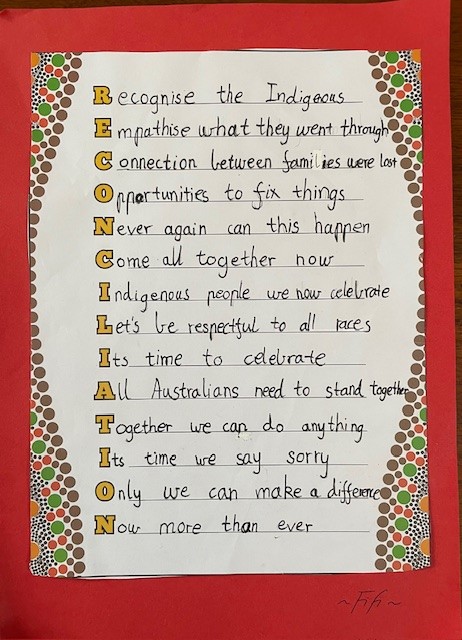 Recognise the Indigeous
Empathise what they went through
Connection between families were lost
Opportunities to fix things
Never again can this happen
Come all together now
Indigenous people we now celebrate
Let's be respectful to all races
Its time to celebrate
All Australians need to stand together
Together we can do anything
Its time we say sorry
Only we can make a difference
Now more than ever
~Fifi~